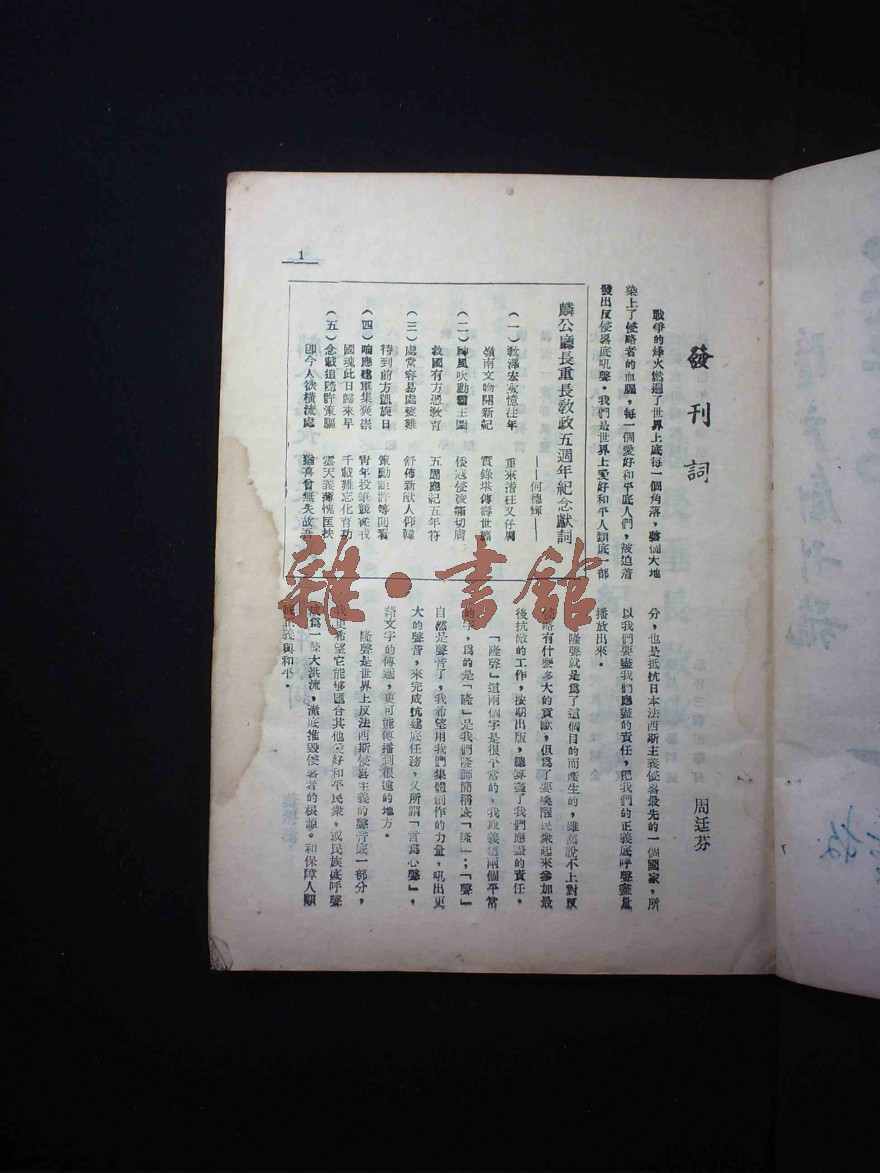 發刊詞
周廷芬
戰爭的烽火燃遍了世界上底每一個角落,整個大地
染上了侵略者的血腥,每一個愛好和平底人們,被迫着
發出反侵畧底吼聲。我們是世界上愛好和平人類底一部
分,也是抵抗日本法西斯主義侵畧最先的一個國家,所
以我們要盡我們應盡的責任,把我們的正義底呼聲儘量
播放出來。
隆聲就是為了這個目的而產生的,雖然說不上對反
侵略有什麼多大的貢獻,但為了要喚醒民衆起來參加最
後抗敵的工作,按期出版,總算盡了我們應盡的責任。
「隆聲」這兩個字是很平常的,我取義這兩個平常
的字,為的是「隆」是我們隆師簡稱底「隆」;「聲」
自然是聲音了,我希望用我們集體創作的力量,吼出更
大的聲音,來完成抗建底任務,又所謂「言為心聲」,
藉文字的傳遞,更可能傳播到很遠的地方。
隆聲是世界上反法西斯侵畧主義的聲音底一部分,
我更希望它能够匯合其他愛好和平民衆,或民族底呼聲
成為一條大洪流,澈底摧毀侵畧者的根源。和保障人類
底正義與和平。
麟公廳長重長教政五週年紀念獻詞
——何德輝——
(一)教澤宏敷憶往年 重來濟
嶺南文物開新紀 實錄堪傳壽世
(二)風吹動 倭寇侵凌痛切膚
救國有方憑教育 五週應紀五年符
(三)處常容易處變難 舒佈新猷人仰韓
待到前方凱旋日 策勳
(四)响應建軍集 青年投筆競從戎
國魂此日歸來早 千載難忘化育功
(五)念載追隨許策驅 雲天義薄愧匡扶
即今人欲橫流處 猶喜曾無失故吾
1
雜·書館